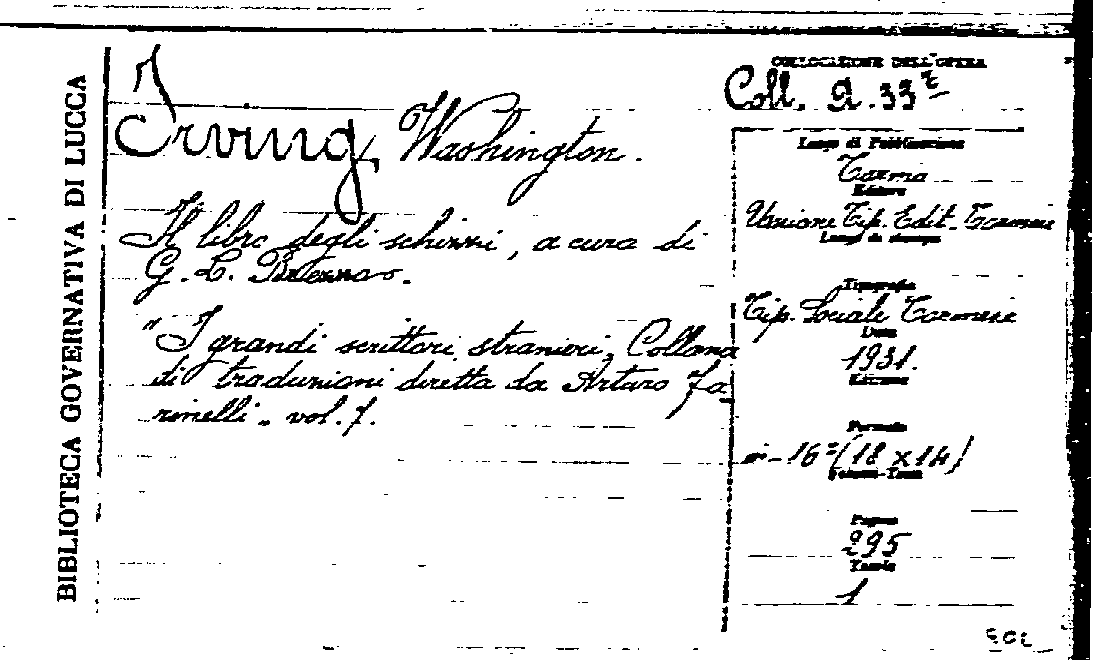 BIBLIOTECA GOVERNATIVA DI LUCCA
Irving, Washington.
Il libro degli schizzi, a cura di
G. L.
"I grandi scrittori stranieri, Collana
di traduzioni diretta da Arturo Fa
rinelli" vol. 7.
COLLOCAZIONE DELL'OPERA
Coll. A. 33
Luogo di Pubblicazione
Torino
Editore
Unione Tip. Edit. Torinese
Luogo di stampa
Tipografia
Tip. Sociale Torinese
Data
1931.
Edizione
Formato
in-16° (18 x 14)
Pagine
295
Tavole
1